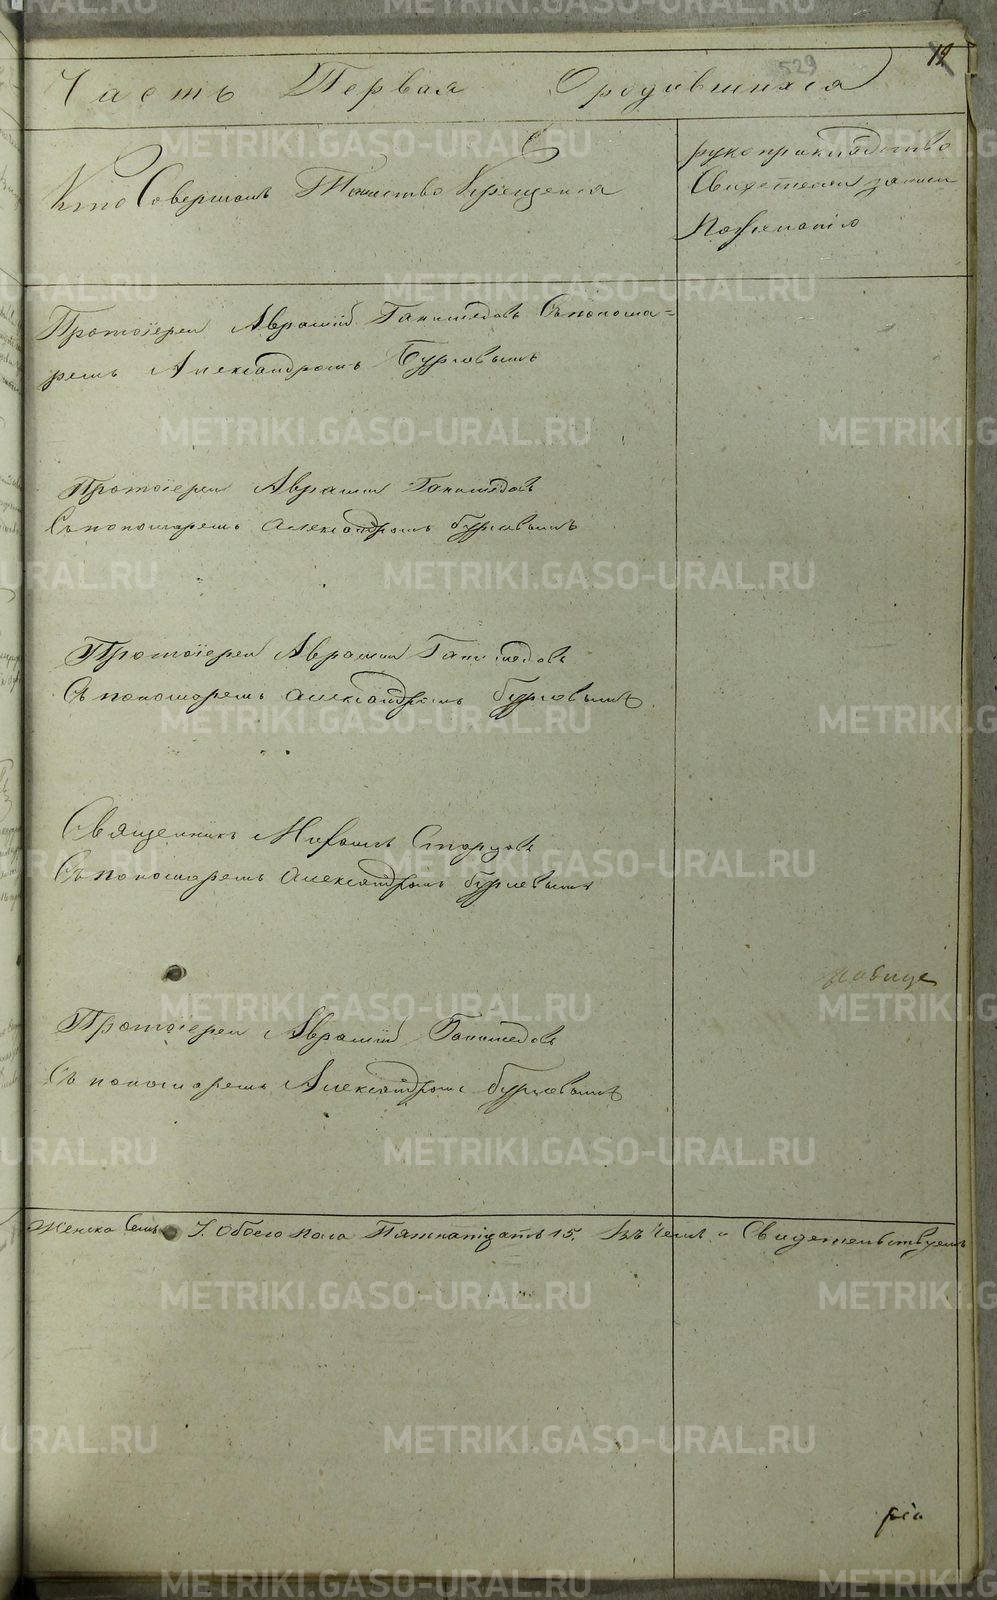 12
529
Часть Первая Ородившихся
Кто Совершалъ Таинство Крещения
рукоприкладство
Свидетелей записи
Пожеланію
Протоіерей Аврамій Ганимедовъ Съпонома=
ремъ Александромъ Бурловымъ
Протоіерей Аврамій Ганимедовъ
Съпономаремъ Александромъ Бурловымъ
Протоіерей Аврамій Ганимедовъ
Съпономаремъ Александромъ Бурловымъ
Священникъ Старцовъ
Съ пономаремъ Александромъ Бурловымъ
Протоіерей Аврамій Ганимедовъ
Съ пономаремъ Александромъ Бурловымъ
Женска Семь 7. Обоего пола Пятнатцать 15. Въ чемъ и Свидетельствуемъ
METRIKI.GASO-URAL.RU